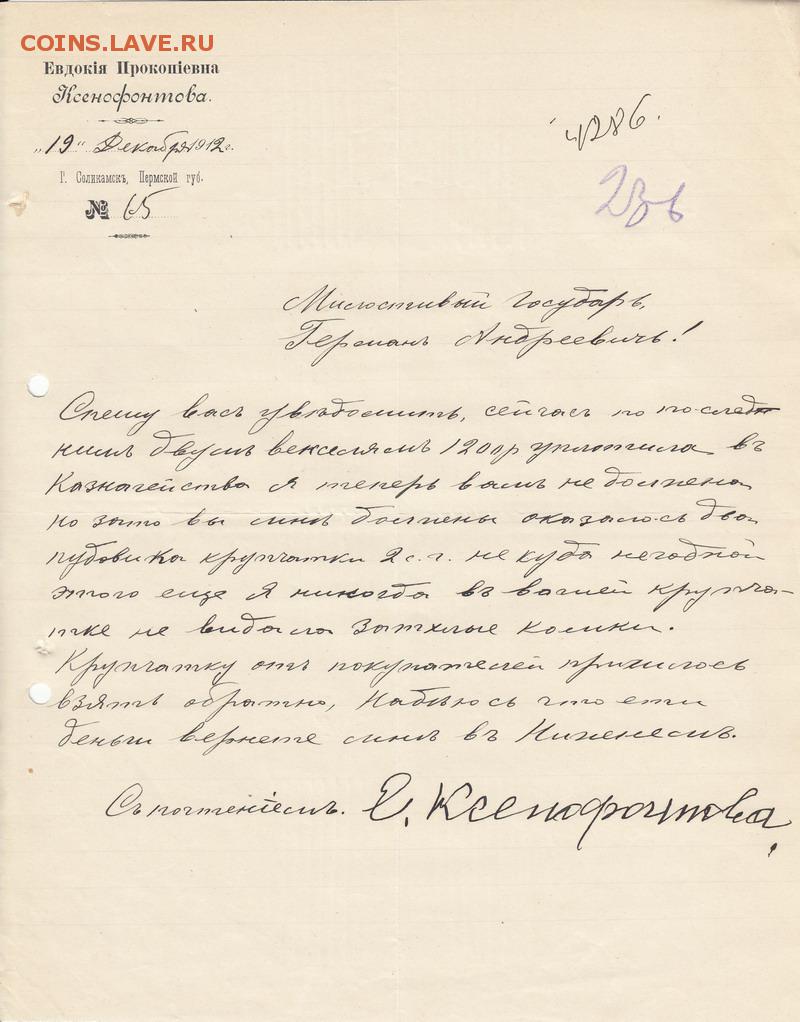 COINS.LAVE.RU
Евдокія Прокопіевна
Ксенофонтова.
"19" Декабря 1912 г.
Г. Соликамскъ, Пермской губ.
№ 65
4286.
236
Милостивый Государь,
Германъ Андреевичъ!
Спешу васъ увѣдомить, сейчасъ по послед
нимъ двумъ векселямъ 1200р уплотила въ
Казначейства я теперь вамъ не должена
но зато вы мнѣ должены оказалось два
пудовика крупчатки 2 с. г. не куда негодной
этого еще я никогда въ вашей крупча-
тке не видала затхлые комики.
Крупчатку отъ покупателей пришлось
взять обратно, надѣюсь что ети
деньги вернете мнѣ въ Нижнемъ.
Съ почтеніемъ. Е. Ксенофонтова